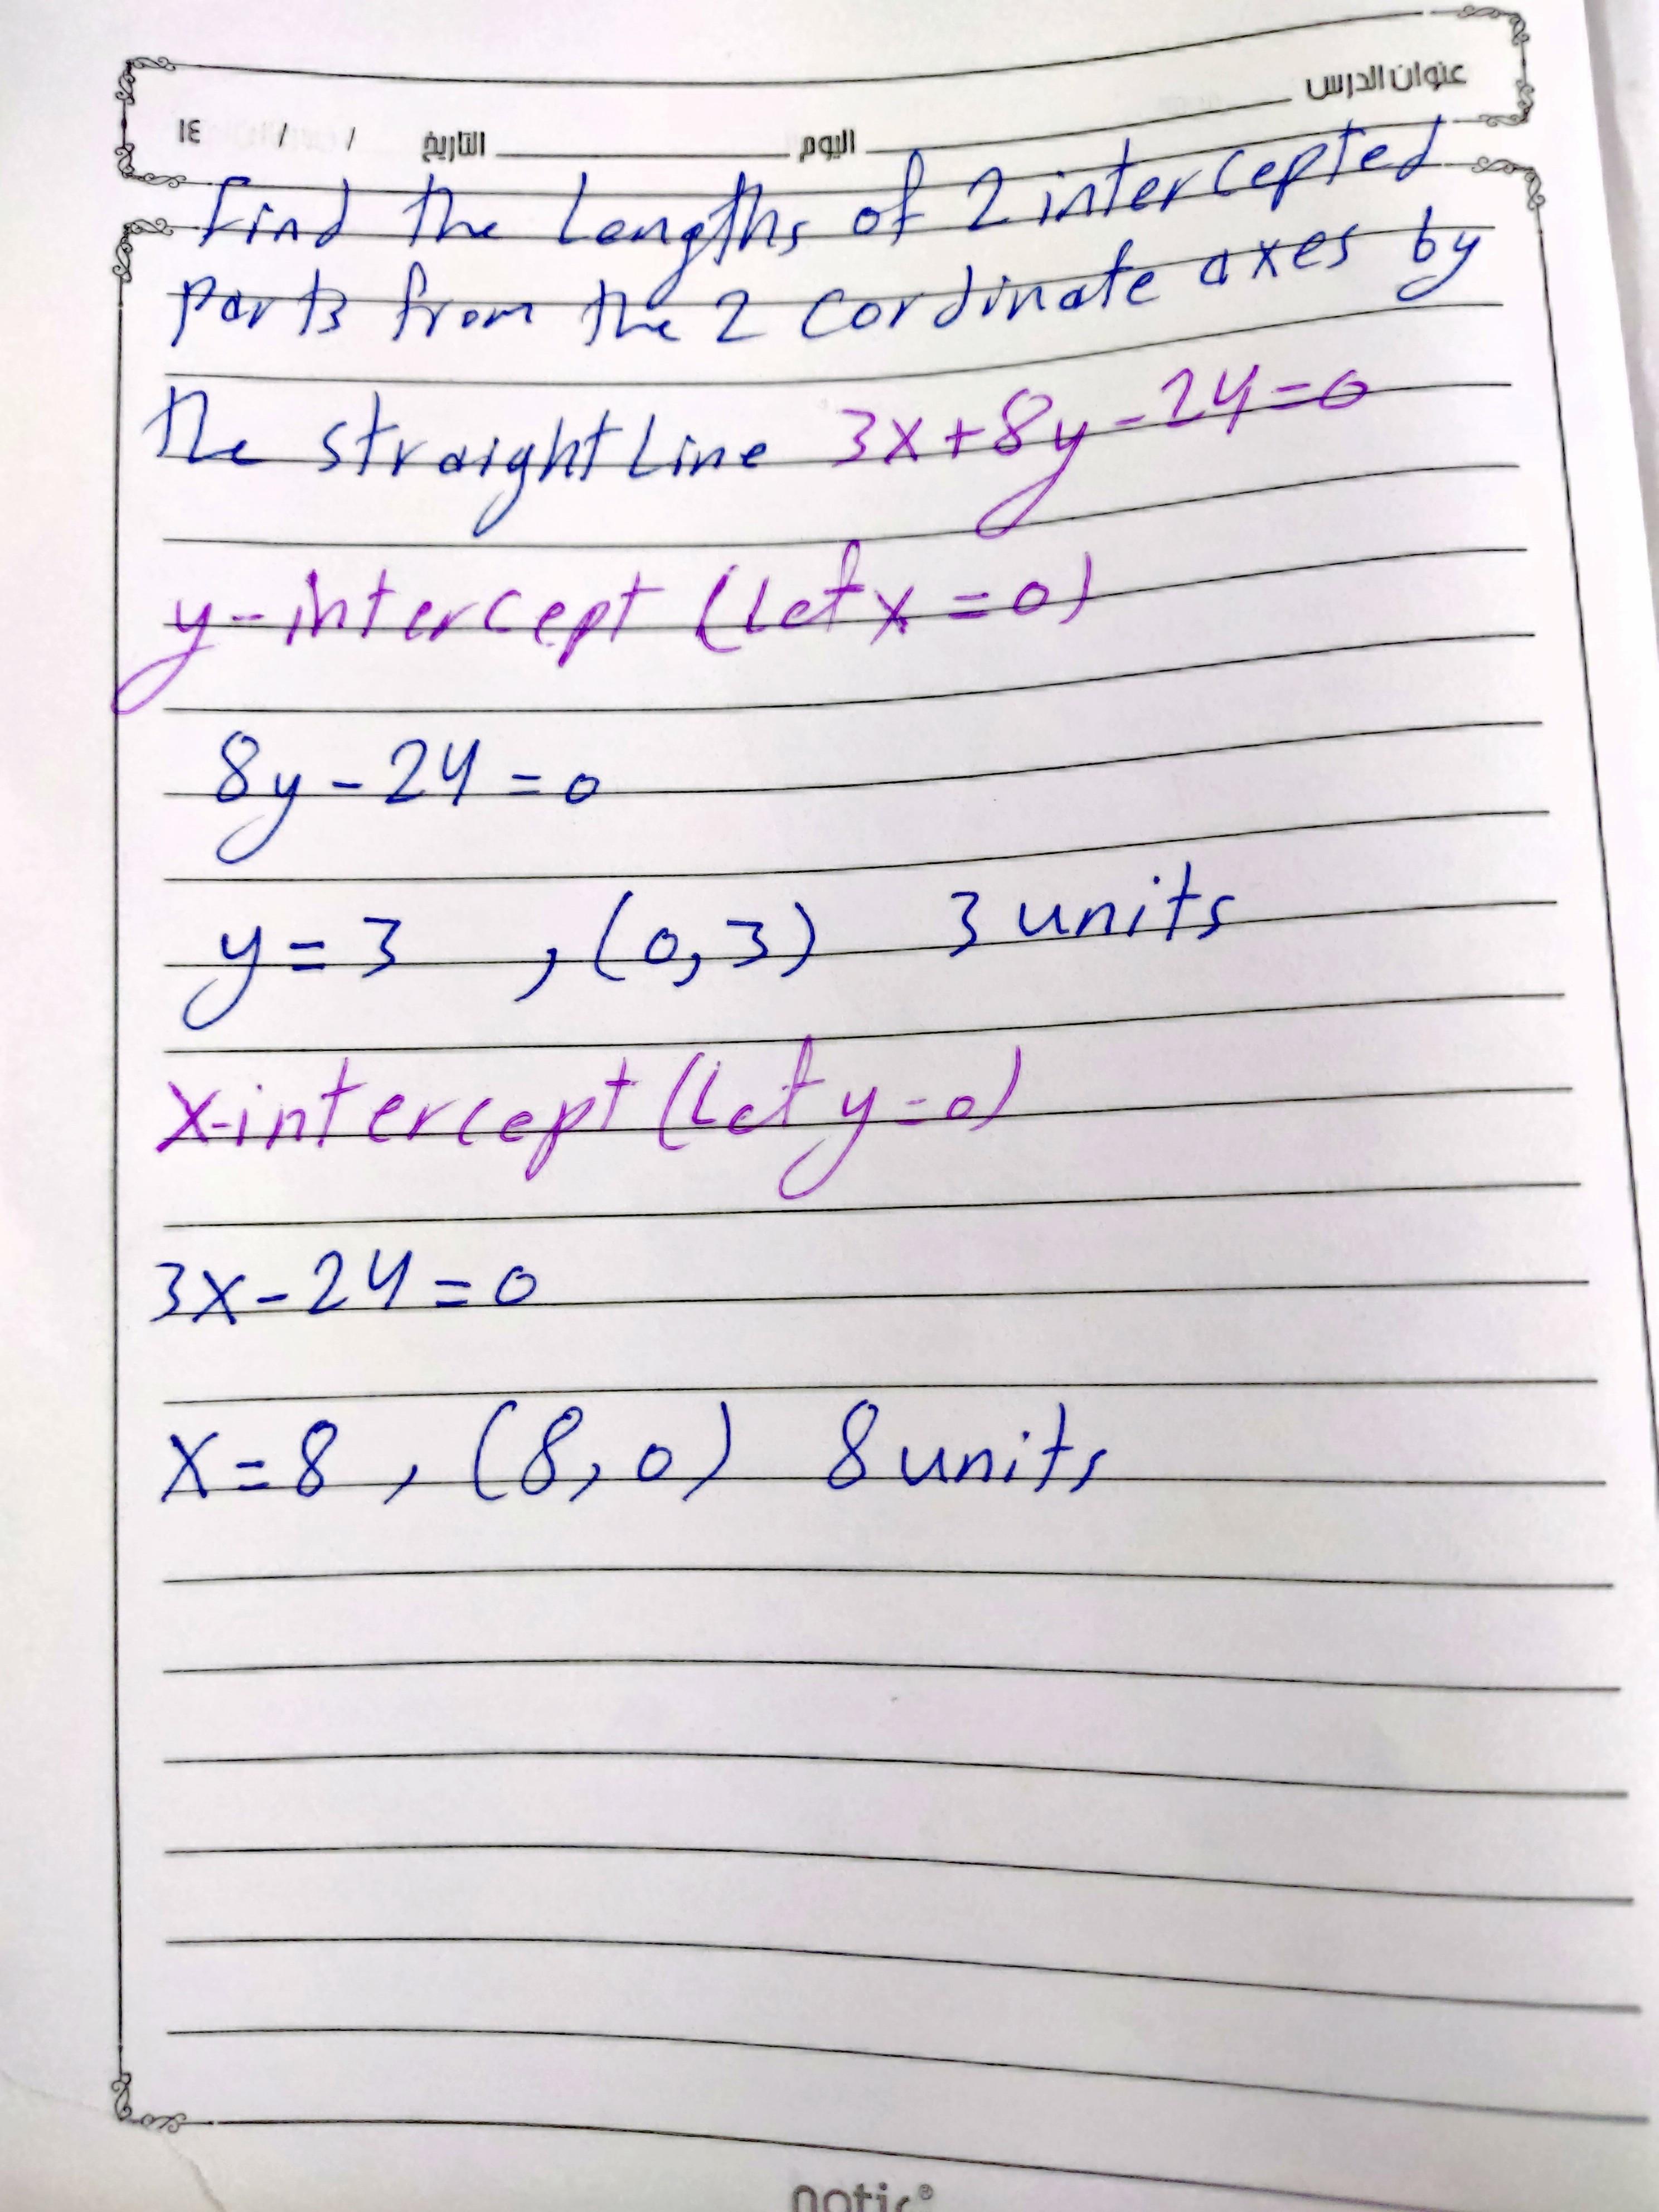 عنوان الدرس
اليوم التاريخ / / ١٤
Find the Lengths of 2 intercepted
parts from the 2 cordinate axes by
the straight Line 3x+8y-24=0
y-intercept (Let x=0)
8y-24=0
y=3 , (0,3) 3 units
x-intercept (Let y=0)
3x-24=0
x=8 , (8,0) 8 units